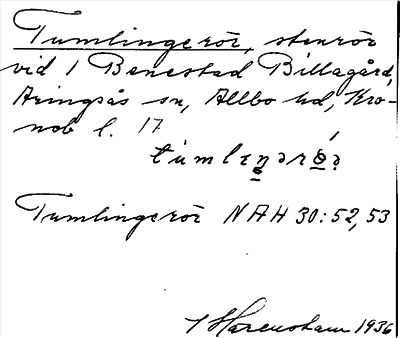 Tumlingerör, stenrör
vid 1 Benestad Billagård,
Aringsås sn, Allbo hd, Kro-
nob l. 17
tùmlɪŋərǿ̱ə
Tumlingerör NAH 30:52,53
1936